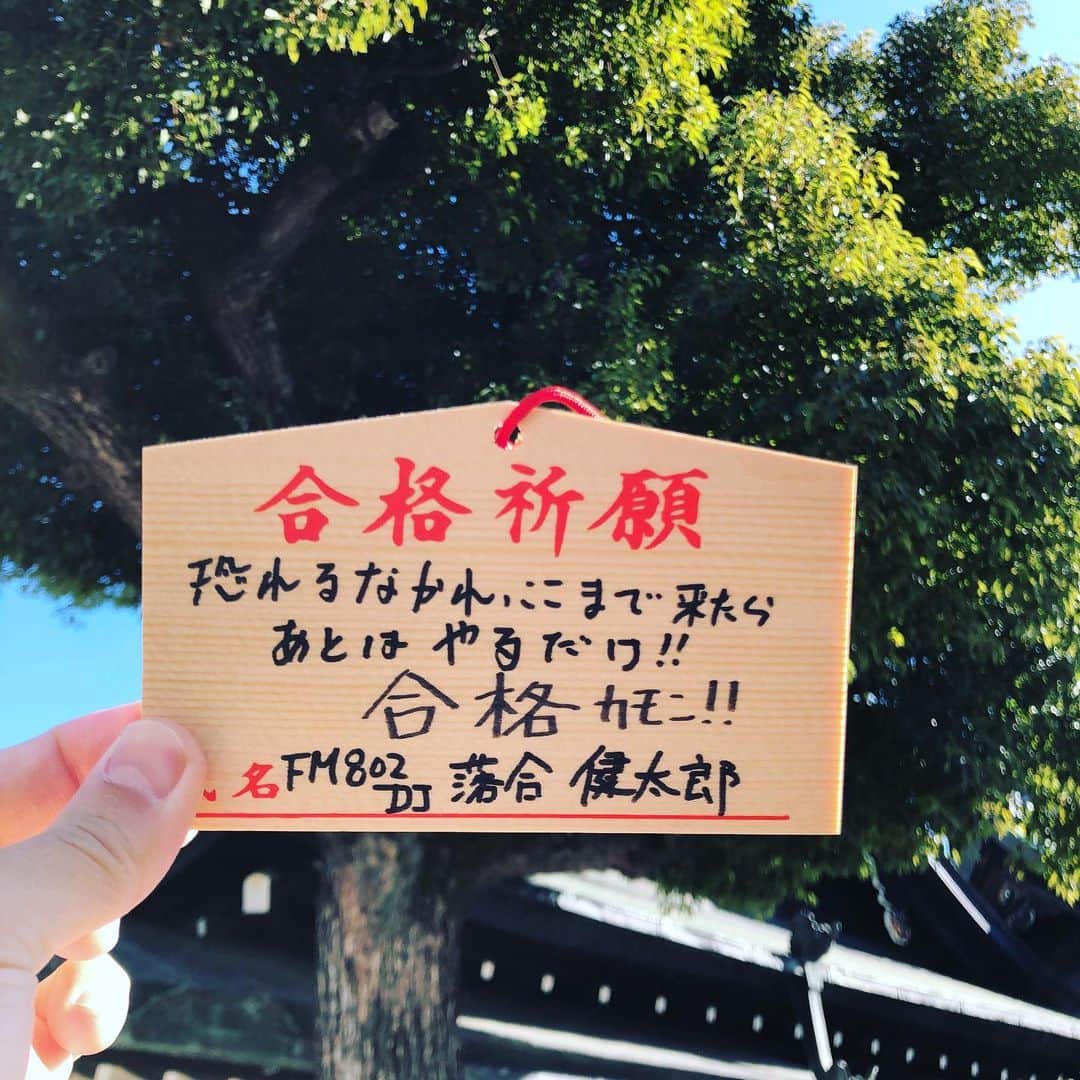 合格祈願
恐れるなかれ、ここまで来たら
あとは やるだけ!!
合格カモン!!
氏名 FM802 DJ 落合 健太郎